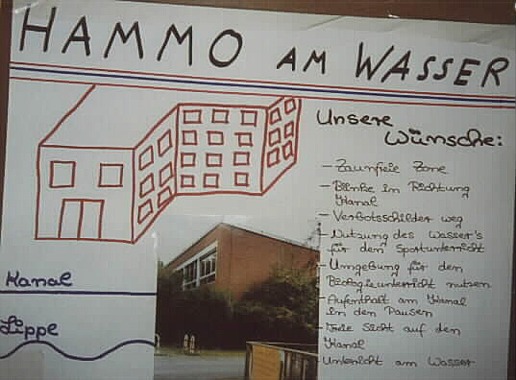 HAMMO AM WASSER
Unsere
Wünsche:
- Zaunfreie Zone
- Bänke in Richtung
Kanal
- Verbotsschilder weg
- Nutzung des Wasser's
für den Sportunterricht
- Umgebung für den
Biologieunterricht nutzen
- Aufenthalt am Kanal
in den Pausen
- Freie Sicht auf den
Kanal
- Unterricht am Wasser
Kanal
Lippe